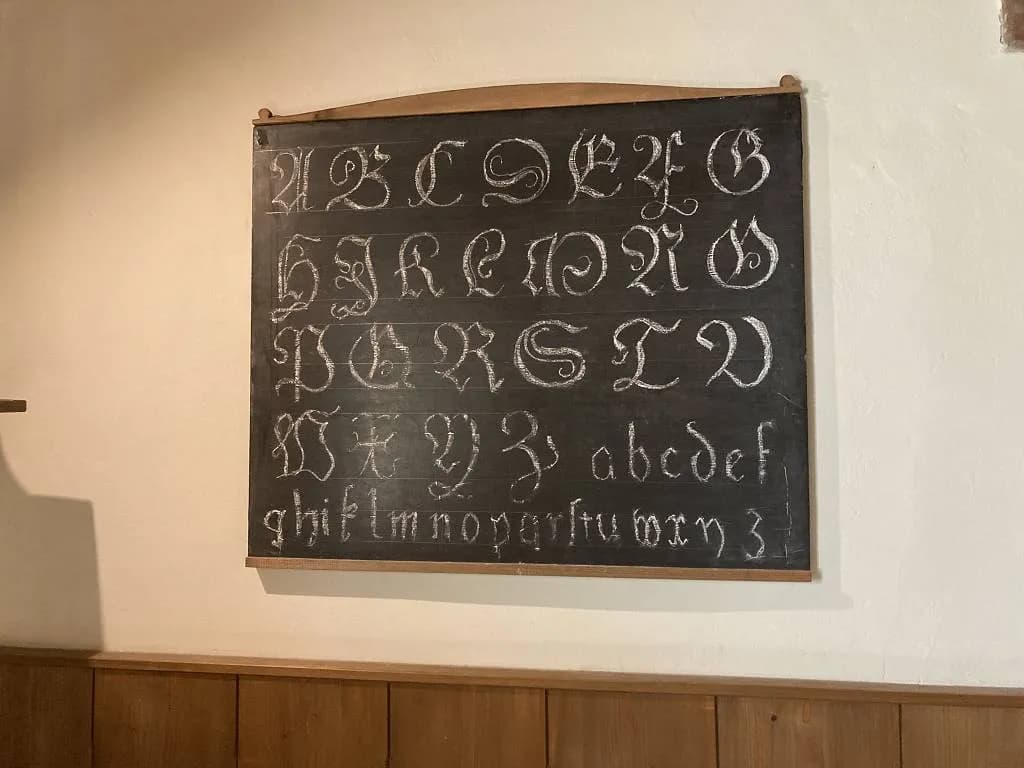 A B C D E F G
H J K L M N O
P Q R S T V
W X Y Z a b c d e f
g h i k l m n o p q r ſ t u w x y z